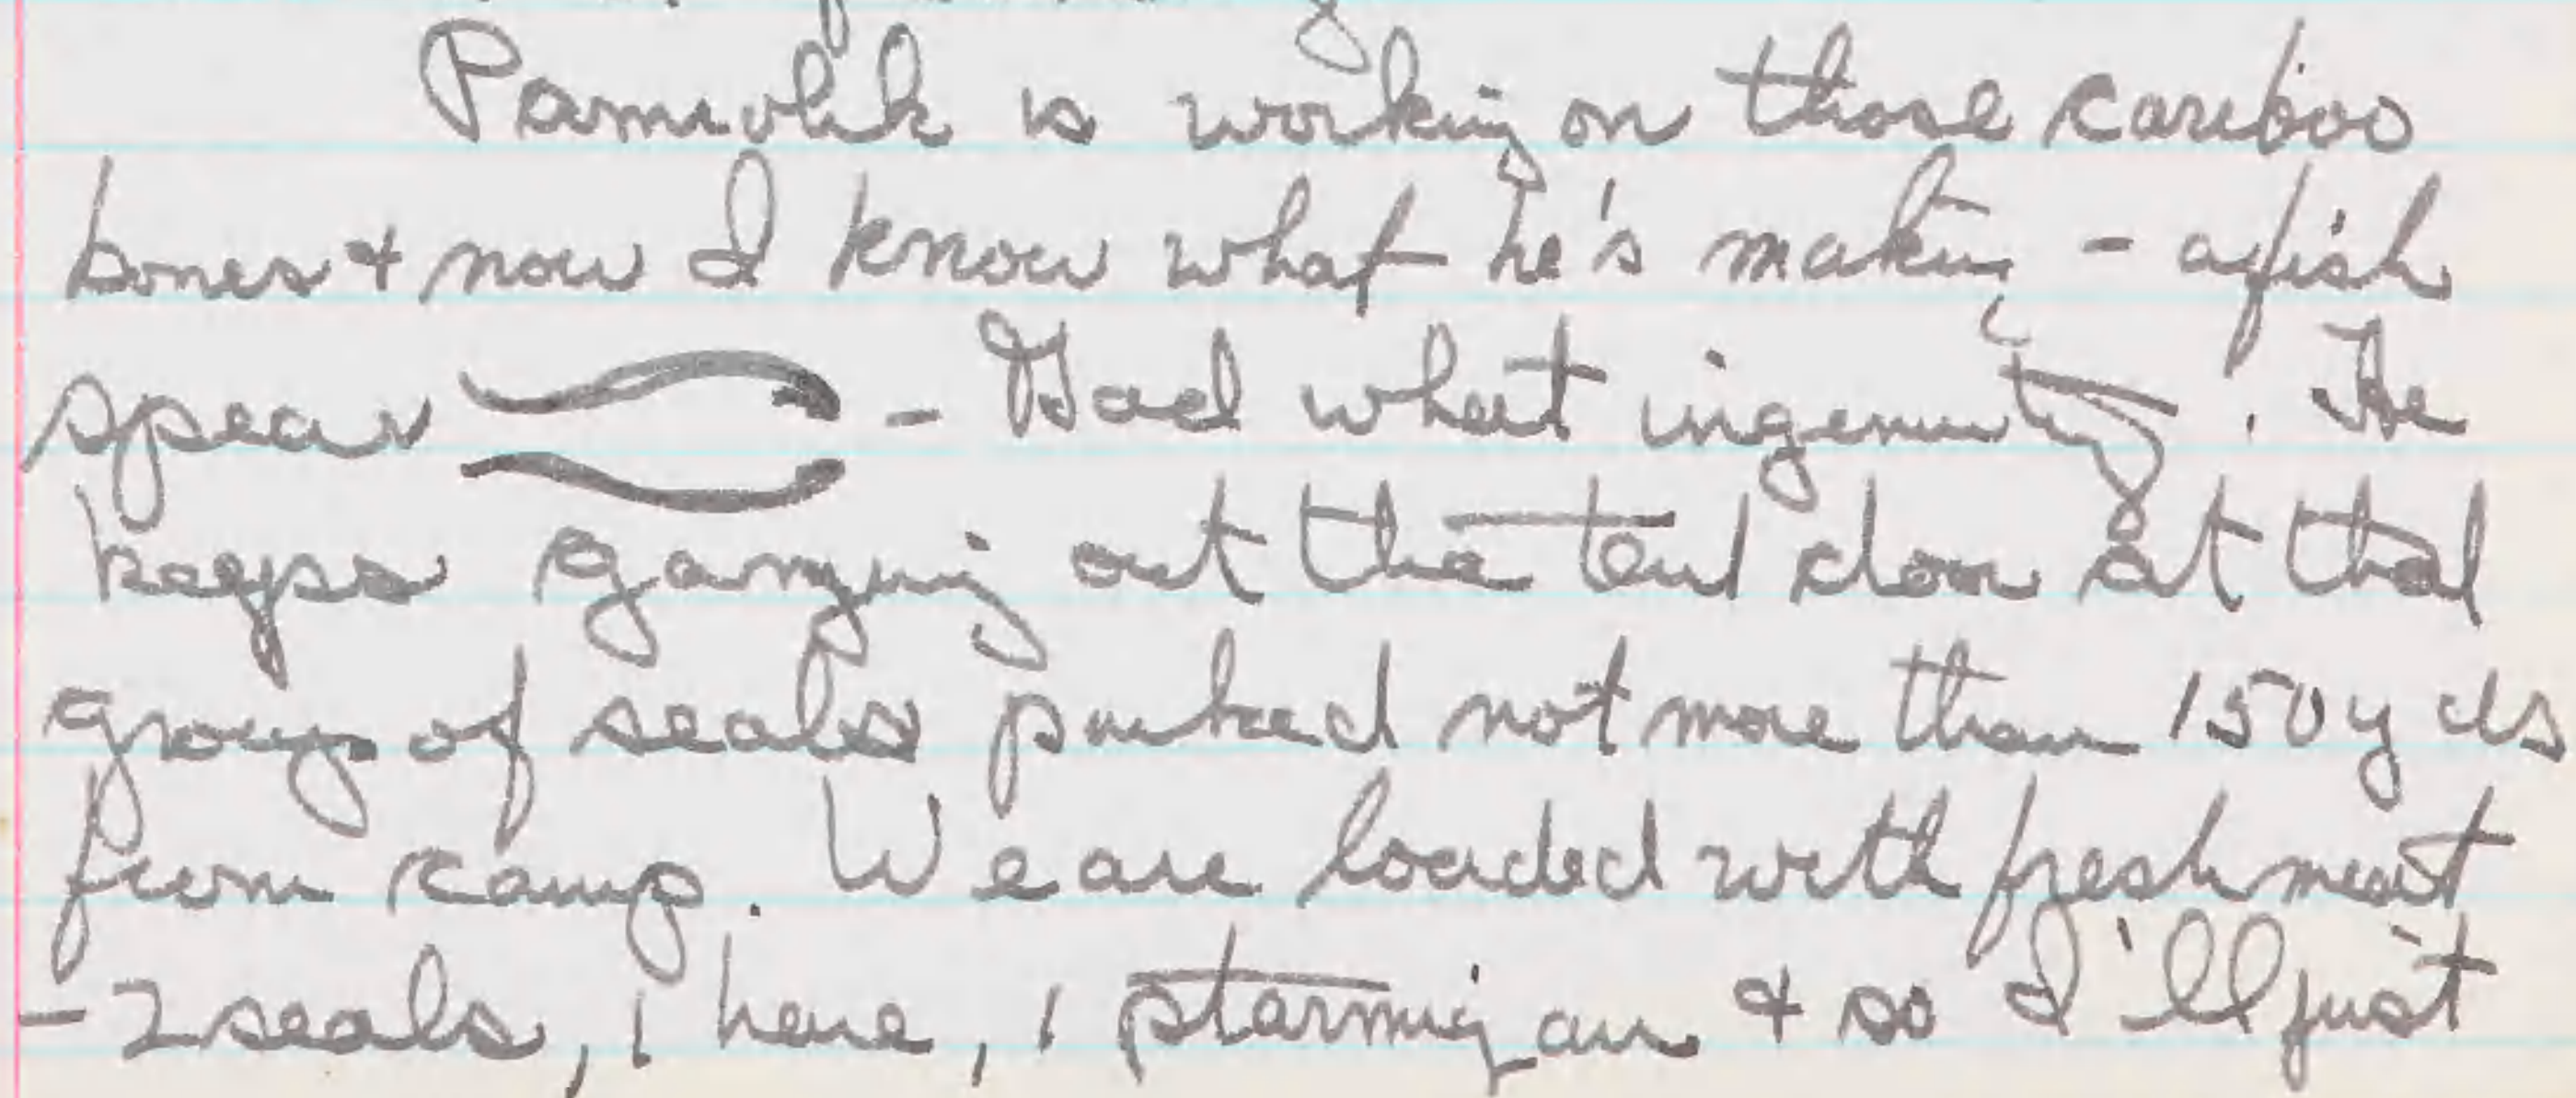 Pamiolik is working on those cariboo
bones & now I know what he's making - a fish
spear - Gad what ingenuity. He
keeps ganzing out the tent door at that
group of seals parked not more than 150 yds
from camp. We are loaded with fresh meat
- 2 seals, 1 hare, 1 ptarmigan & so I'll just